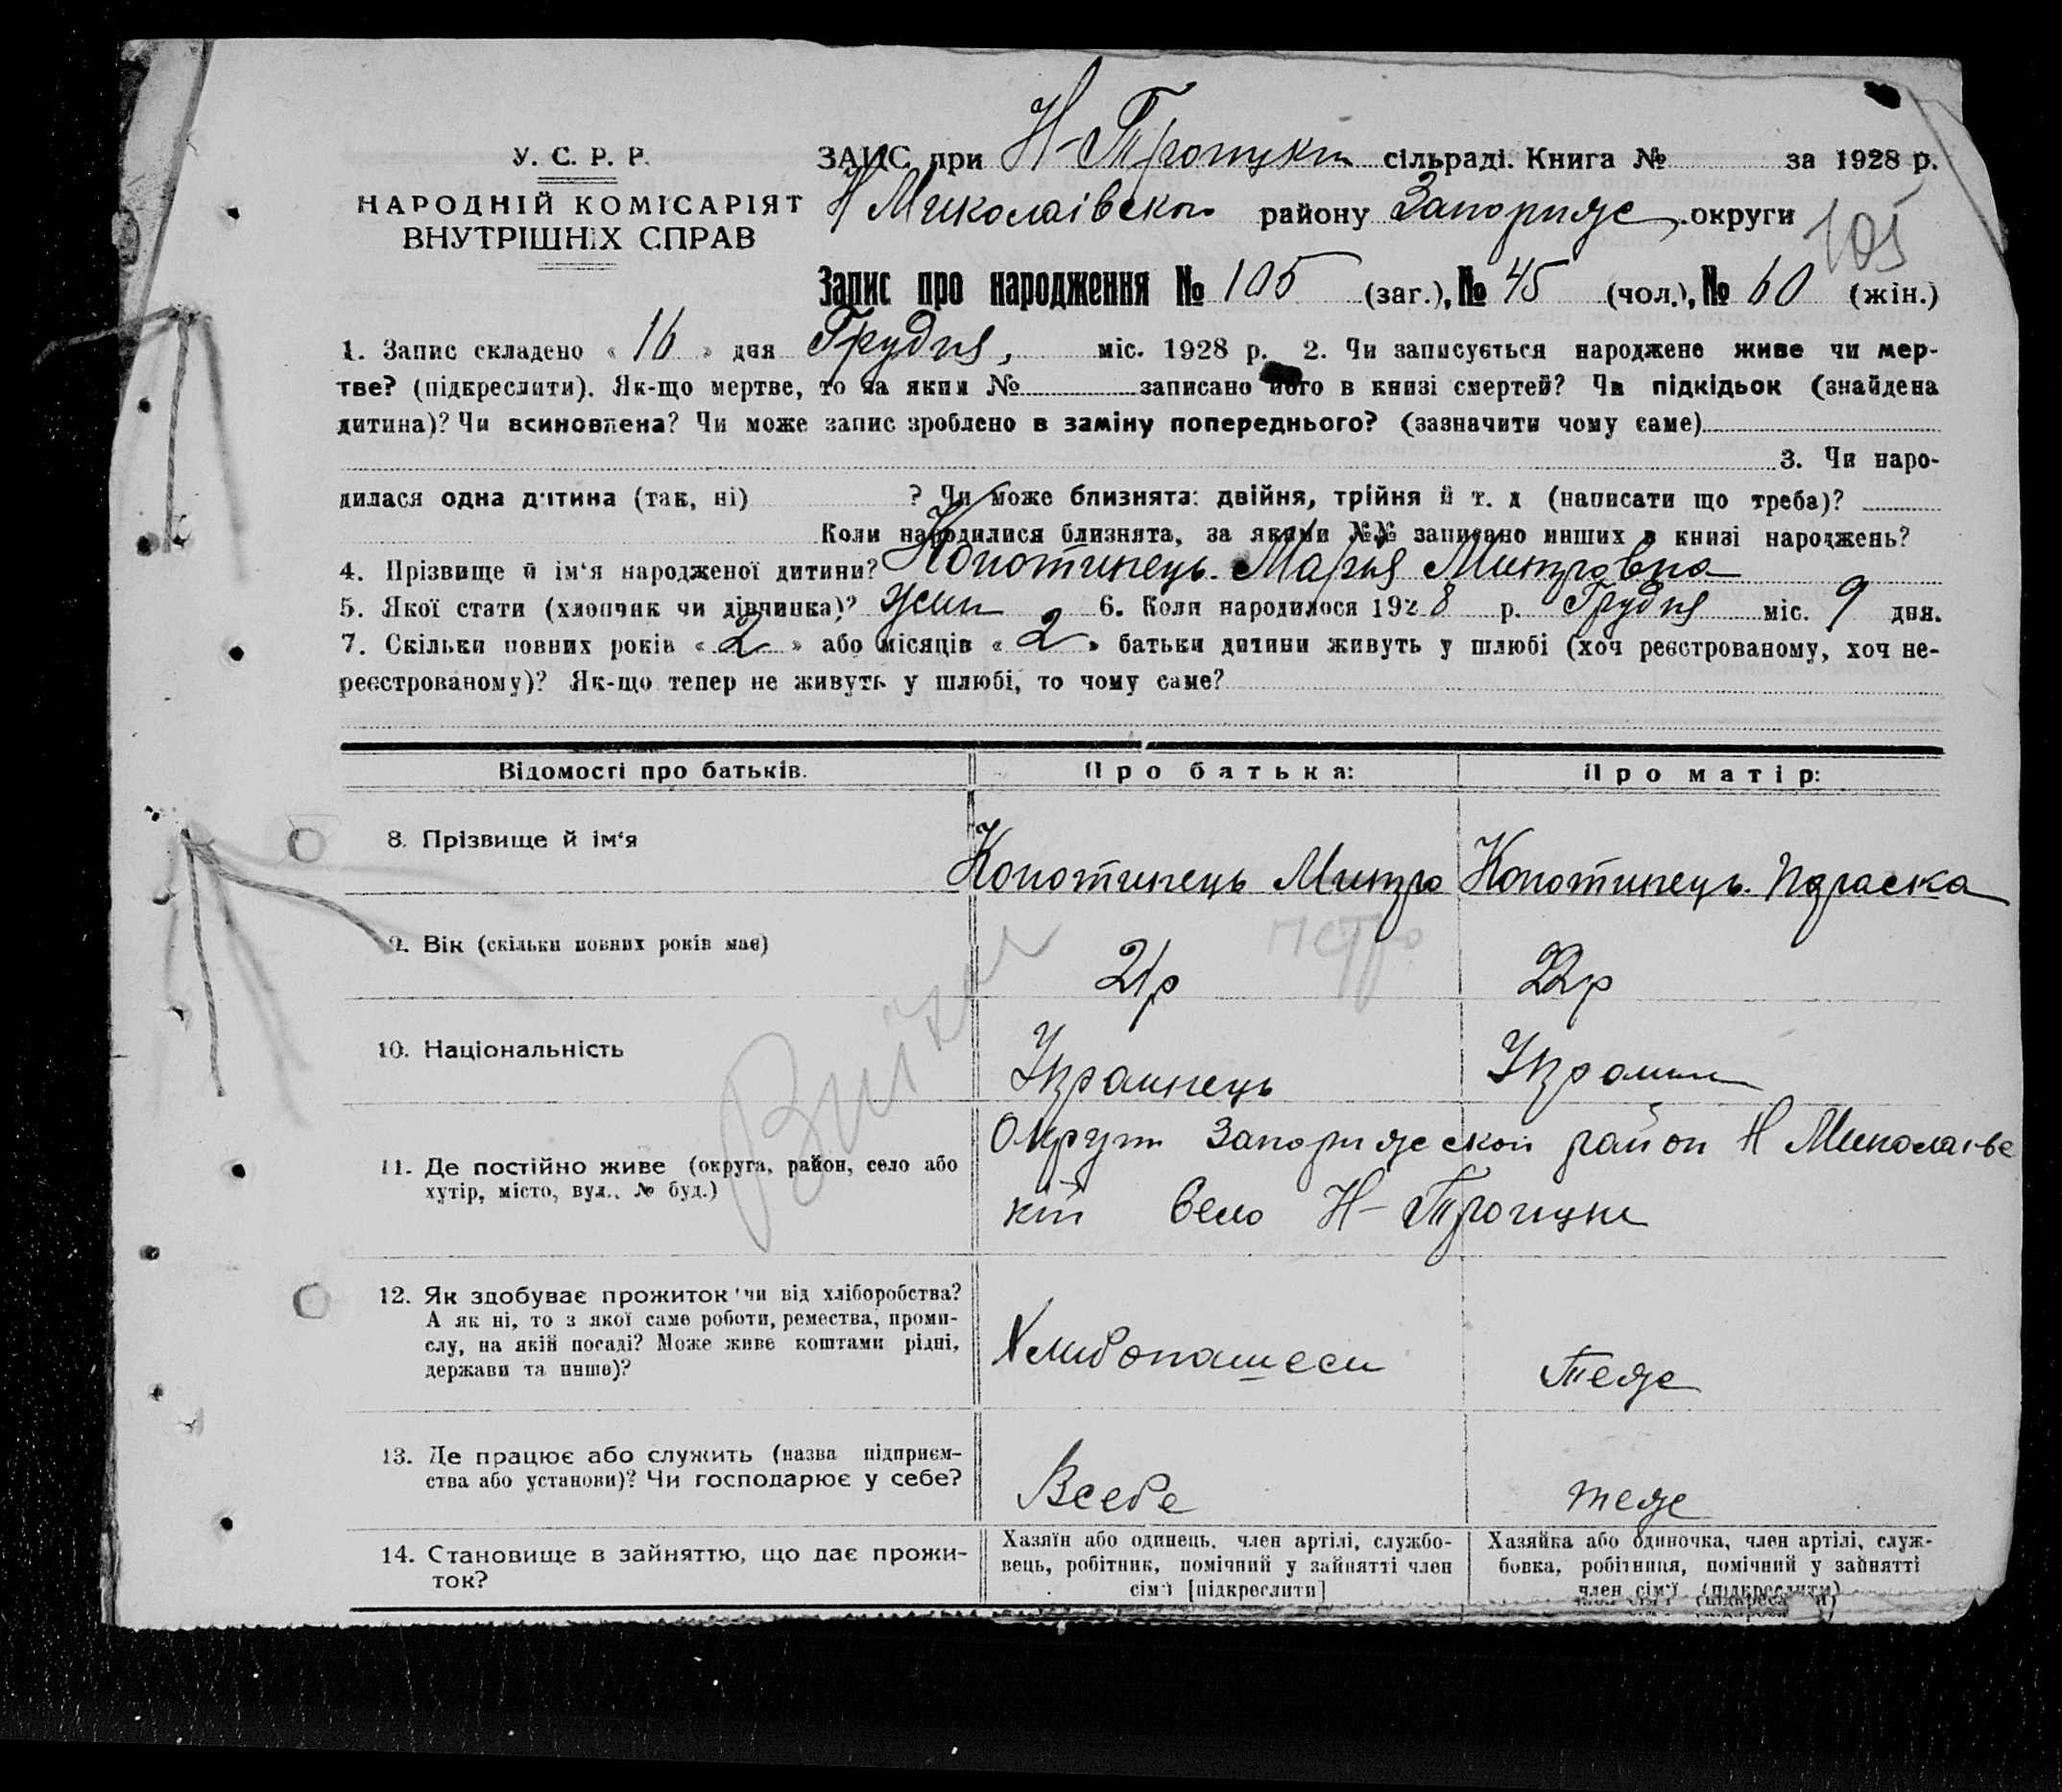 У. С. Р. Р.
НАРОДНІЙ КОМІСАРІЯТ
ВНУТРІШНІХ СПРАВ
ЗАГС при Н-Троицкі сільраді. Книга № за 1928 р.
Н Миколаівскои району Запориже. округи
105
Запис про народження № 105 (заг.), № 45 (чол.), № 60 (жін.)
1. Запис складено « 16 » дня Грудня, міс. 1928 р. 2. Чи записується народжене живе чи мер-
тве? (підкреслити). Як-що мертве, то за яким № записано його в книзі смертей? Чи підкідьок (знайдена
дитина)? Чи всиновлена? Чи може запис зроблено в заміну попереднього? (зазначити чому саме)
3. Чи наро-
дилася одна дитина (так, ні) ? Чи може близнята: двійня, трійня й т. д (написати що треба)?
Коли народилися близнята, за якими №№ записано инших в книзі народжень?
4. Прізвище й ім‘я народженої дитини? Конотинець Мария Митровна
5. Якої стати (хлопчик чи дівчинка)? Жин 6. Коли народилося 1928 р. Грудня міс. 9 дня.
7. Скільки повних років « 2 » або місяців « 2 » батьки дитини живуть у шлюбі (хоч реєстрованому, хоч не-
реєстрованому)? Як-що тепер не живуть у шлюбі, то чому саме?
Відомості про батьків. Про батька: Про матір:
8. Прізвище й ім‘я Конотинець Митро Конотинець Параска
9. Вік (скільки повних років має) 21р 22р
10. Національність Украинець Украин
11. Де постійно живе (округа, район, село або
хутір, місто, вул., № буд.)
Округи Запорижскои район Н Миколаівс
кій Село Н-Троицки
12. Як здобуває прожиток чи від хліборобства?
А як ні, то з якої саме роботи, ремества, проми-
слу, на якій посаді? Може живе коштами рідні,
держави та инше)?
Хлибопашеси Теже
13. Де працює або служить (назва підприєм-
ства або установи)? Чи господарює у себе?
Всебе теже
14. Становище в зайняттю, що дає прожи-
ток?
Хазяїн або одинець, член артілі, службо-
вець, робітник, помічний у зайнятті член
сім‘ї [підкреслити]
Хазяйка або одиночка, член артілі, служ-
бовка, робітниця, помічний у зайнятті
член сім‘ї (підкреслити)